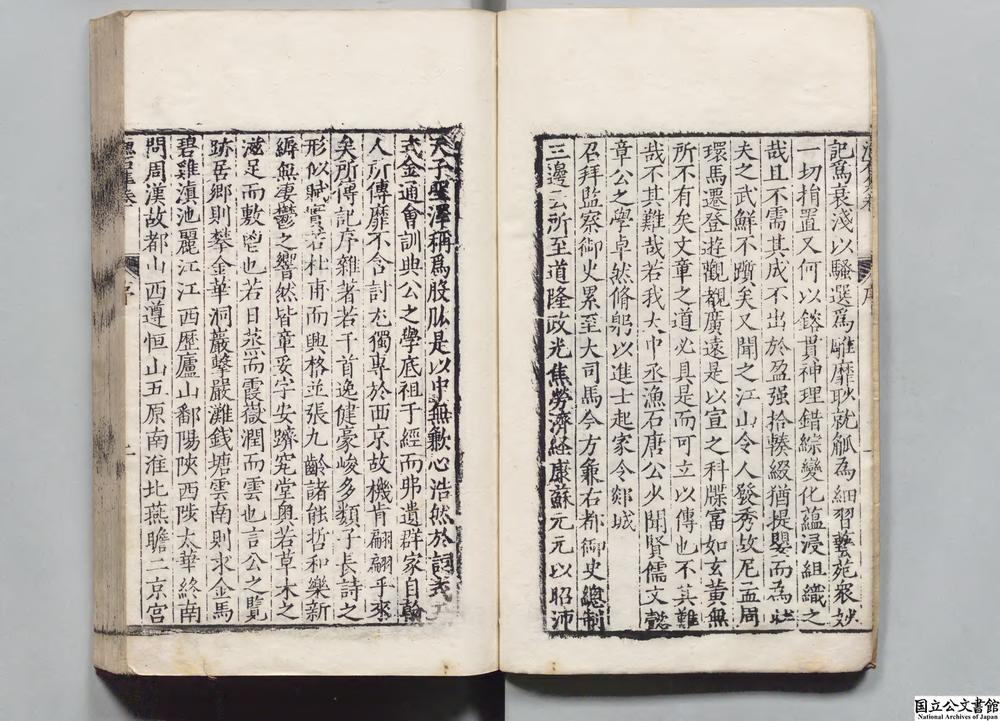 記爲哀淺以騷選爲雕靡耴就觚為細習藝苑衆妙
一切捐置又何以鎔貫神理錯綜變化蘊浸組織之
哉且不需其成不出於盈强拾輳綴猶提嬰而為
夫之武鮮不躓矣又聞之江山令人發秀故尼孟周
環馬遷登遊觀覩廣遠是以宣之科牒富如玄黃無
所不有矣文章之道必具是而可立以傳也不其難
哉不其難哉若我大中丞漁石唐公少聞賢儒文懿
章公之學卓然脩躬以進士起家令郯城
召拜監察御史累至大司馬今方兼右都御史總制
三邊云所至道隆政光焦勞濟經康蘇元元以昭沛
天子聖澤稱爲股肱是以中無歉心浩然於詞
弍金通會訓典公之學底祖于經而弗遺群家自翰
人所傳靡不含討尤獨專於西京故機肯翩翩乎來
矣所傳記序雜著若干首逸健豪峻多類子長詩之
形似賦實若杜甫而興格並張九齡諸能哲和樂新
縟無凄鬱之響然皆章妥字安躋究堂奧若草木之
滋足而敷鬯也若日蒸而霞嶽潤而雲也言公之覽
跡居鄉則攀金華洞巖擊嚴灘錢塘雲南則求金馬
碧雞滇池麗江江西歷廬山鄱陽陝西陟太華終南
問周漢故都山西遵恒山五原南淮北燕瞻二京宮
序
国立公文書館
National Archives of Japan